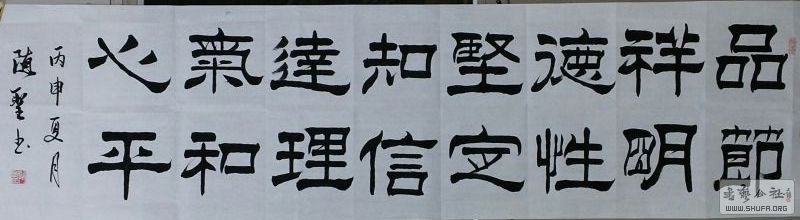 品節
祥明
徳性
堅定
知信
達理
氣和
心平
丙申夏月
書藝公社
WWW.SHUFA.ORG